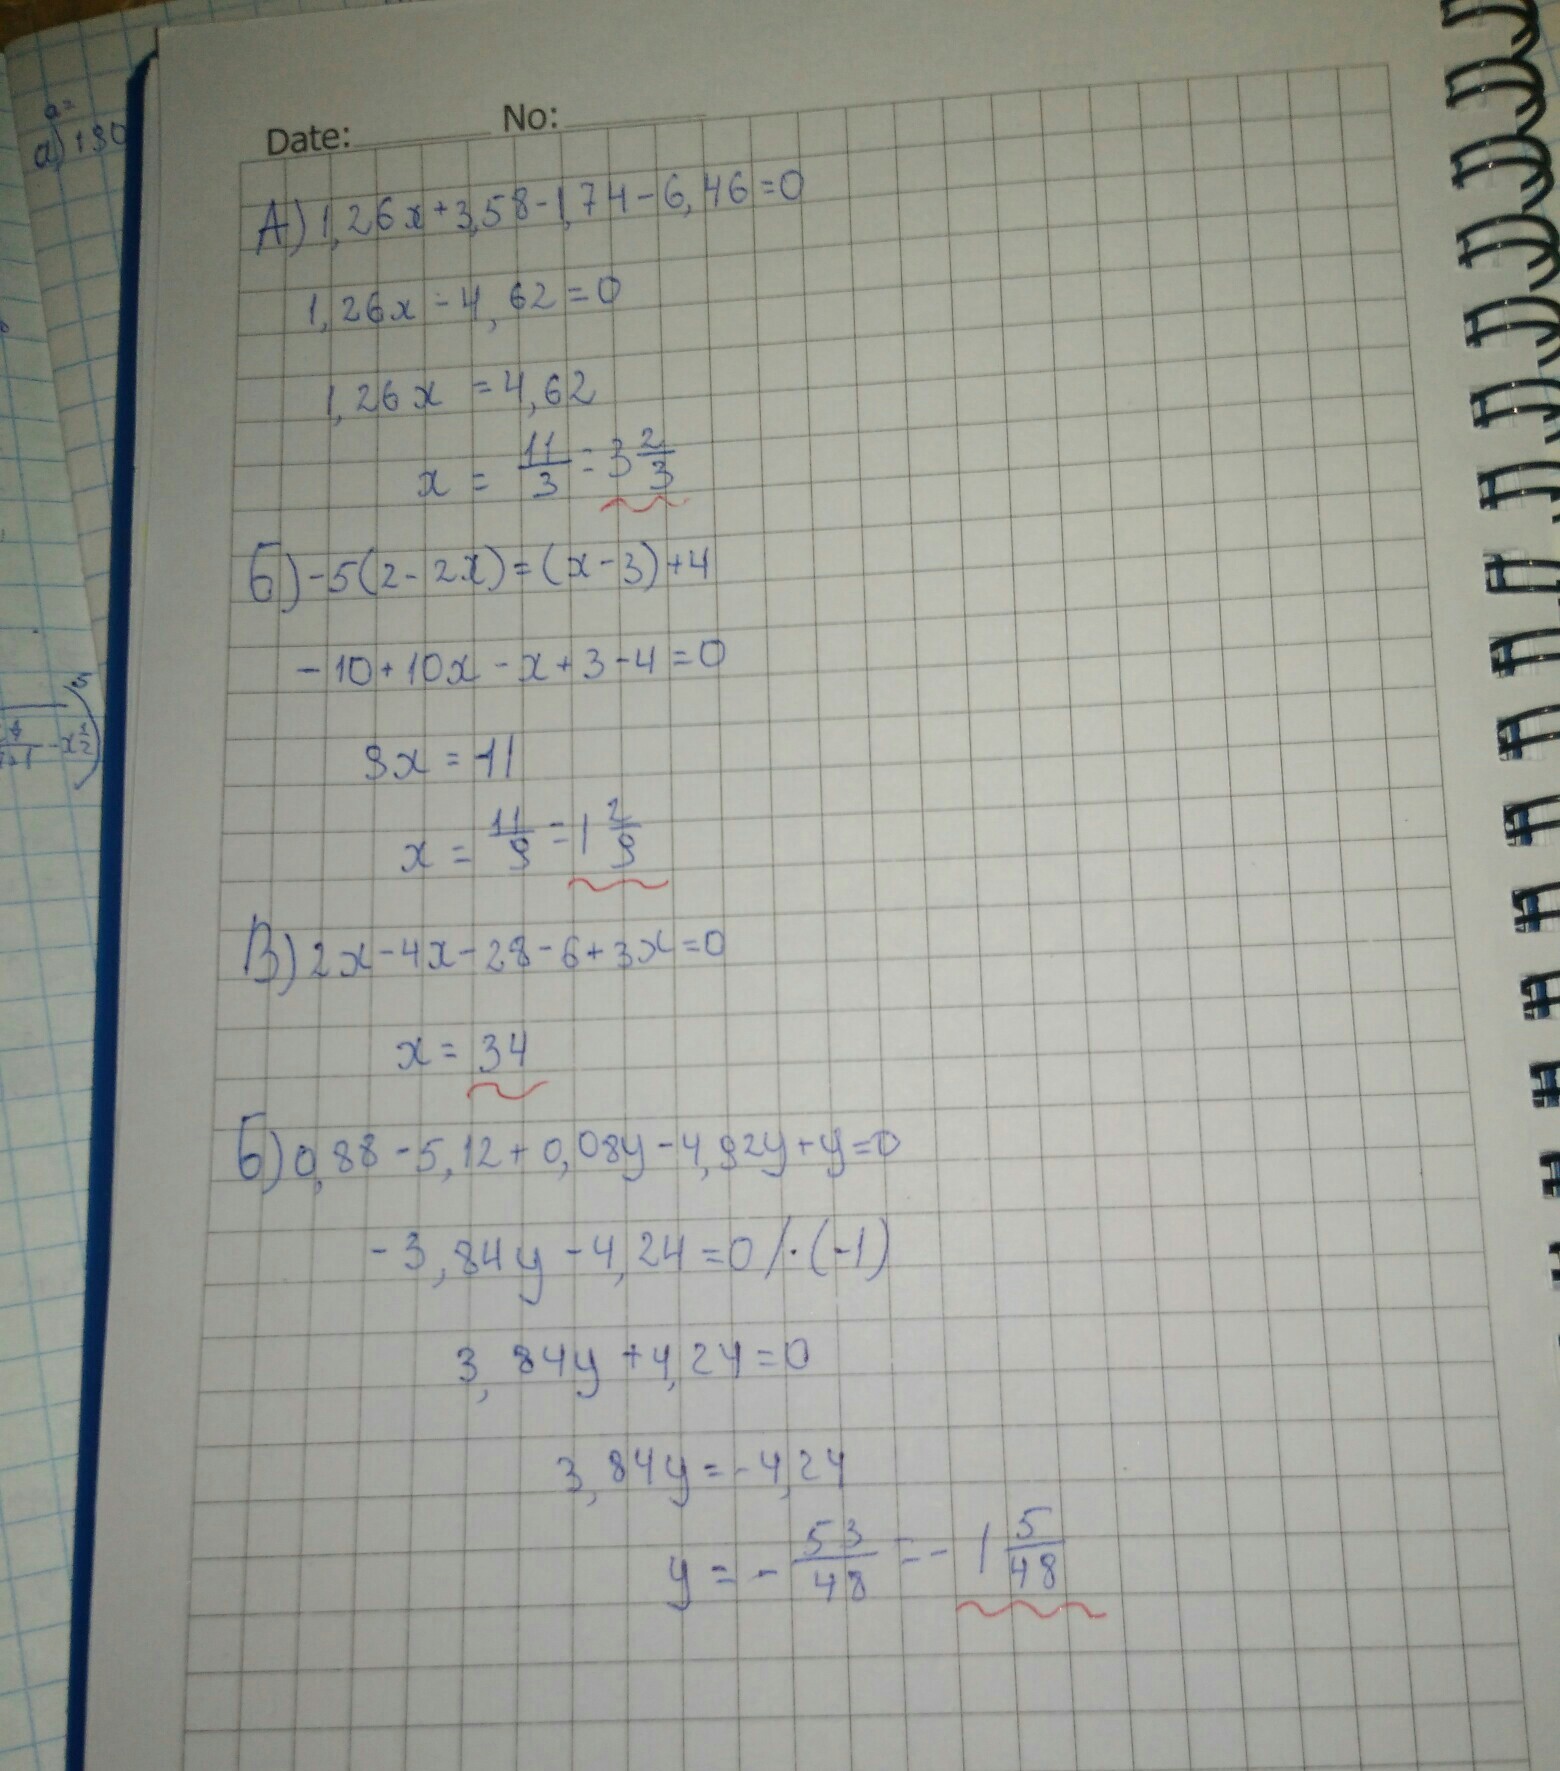 a=
a) 130
Date: No:
A) 1,26x+3,58-1,74-6,46=0
1,26x-4,62=0
1,26x =4,62
x = 11/3 = 3 2/3
Б) -5(2-2x)=(x-3)+4
-10+10x-x+3-4=0
9x = 11
x = 11/9 = 1 2/9
В) 2x-4x-28-6+3x=0
x = 34
Б) 0,88-5,12+0,08y-4,92y+y=0
-3,84y-4,24=0/·(-1)
3,84y+4,24=0
3,84y=-4,24
y = - 53/48 = - 1 5/48